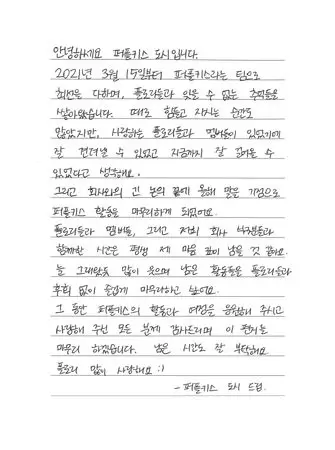 안녕하세요 퍼플키스 도시입니다.
2021년 3월 15일부터 퍼플키스라는 팀으로
최선을 다하며, 플로리들과 잊을 수 없는 추억들을
쌓아왔습니다. 때로 힘들고 지치는 순간도
많았지만, 사랑하는 플로리들과 멤버들이 있었기에
잘 견뎌낼 수 있었고 지금까지 잘 걸어올 수
있었다고 생각해요.
그리고 회사와의 긴 논의 끝에 올해 말을 기점으로
퍼플키스 활동을 마무리하게 되었어요.
플로리들과 멤버들, 그리고 저희 회사 식구분들과
함께한 시간은 평생 제 마음 깊이 남을 것 같아요.
늘 그래왔듯 많이 웃으며 남은 활동들을 플로리들과
후회 없이 즐겁게 마무리하고 싶어요.
그 동안 퍼플키스의 활동과 여정을 응원해 주시고
사랑해 주신 모든 분께 감사드리며 이 편지를
마무리 하겠습니다. 남은 시간도 잘 부탁해요.
플로리 많이 사랑해요 :)
- 퍼플키스 도시 드림.